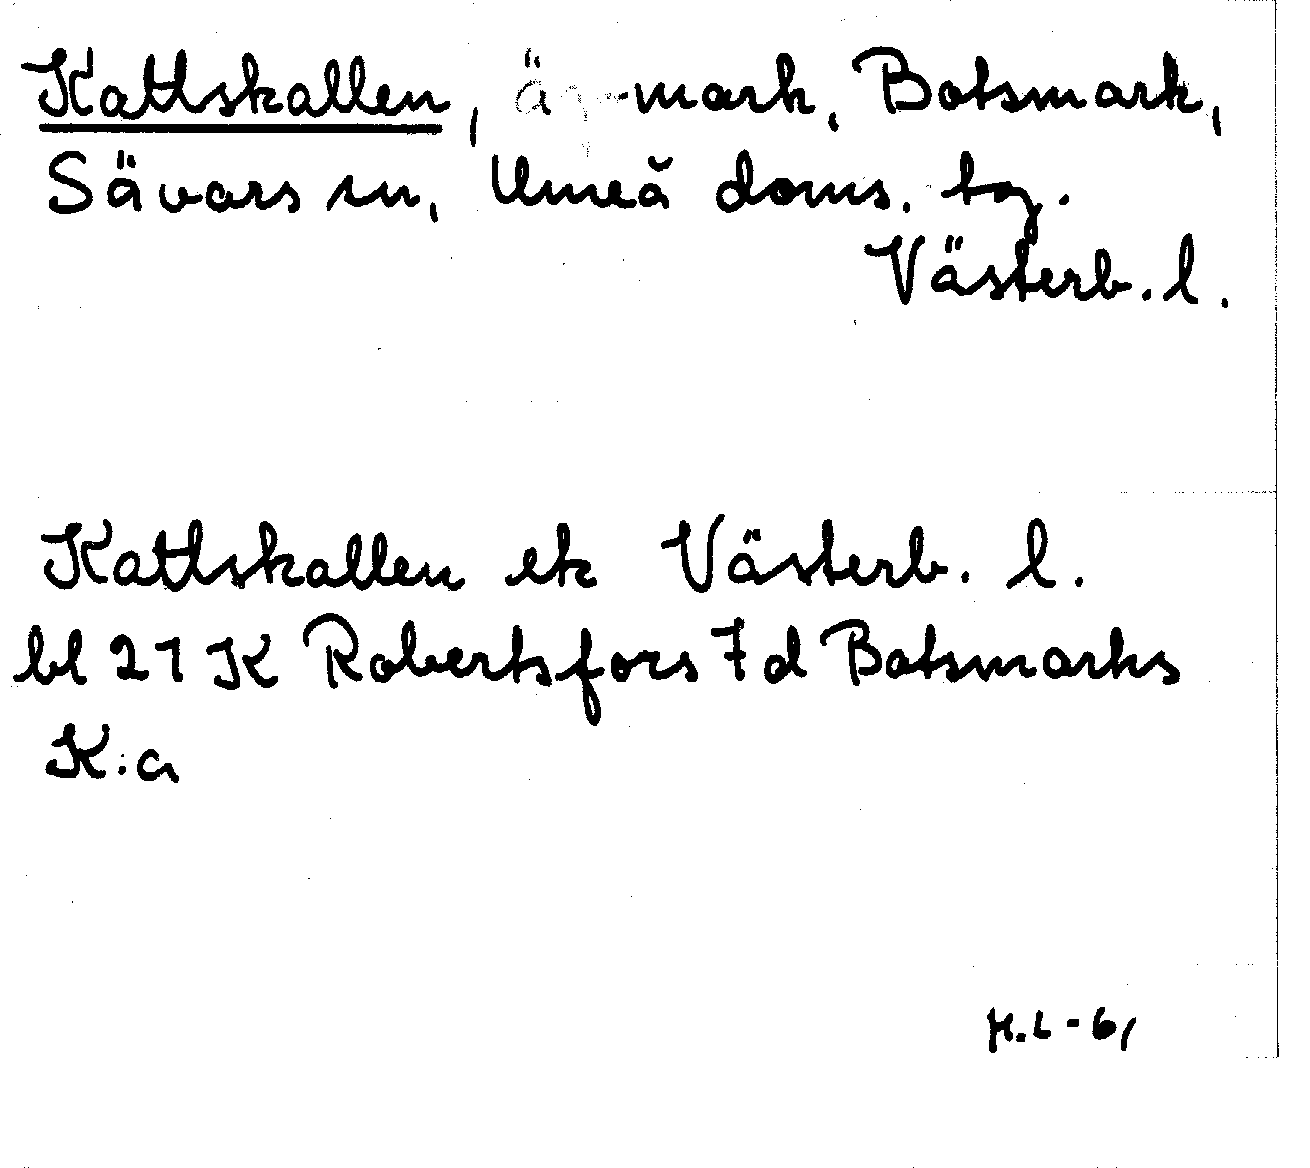 Kattskallen, äg-mark, Botsmark,
Sävars sn, Umeå doms. tg.
Västerb. l.
Kattskallen ek Västerb. l.
bl 21 K Robertsfors 7d Botsmarks
K:a
H.L-61